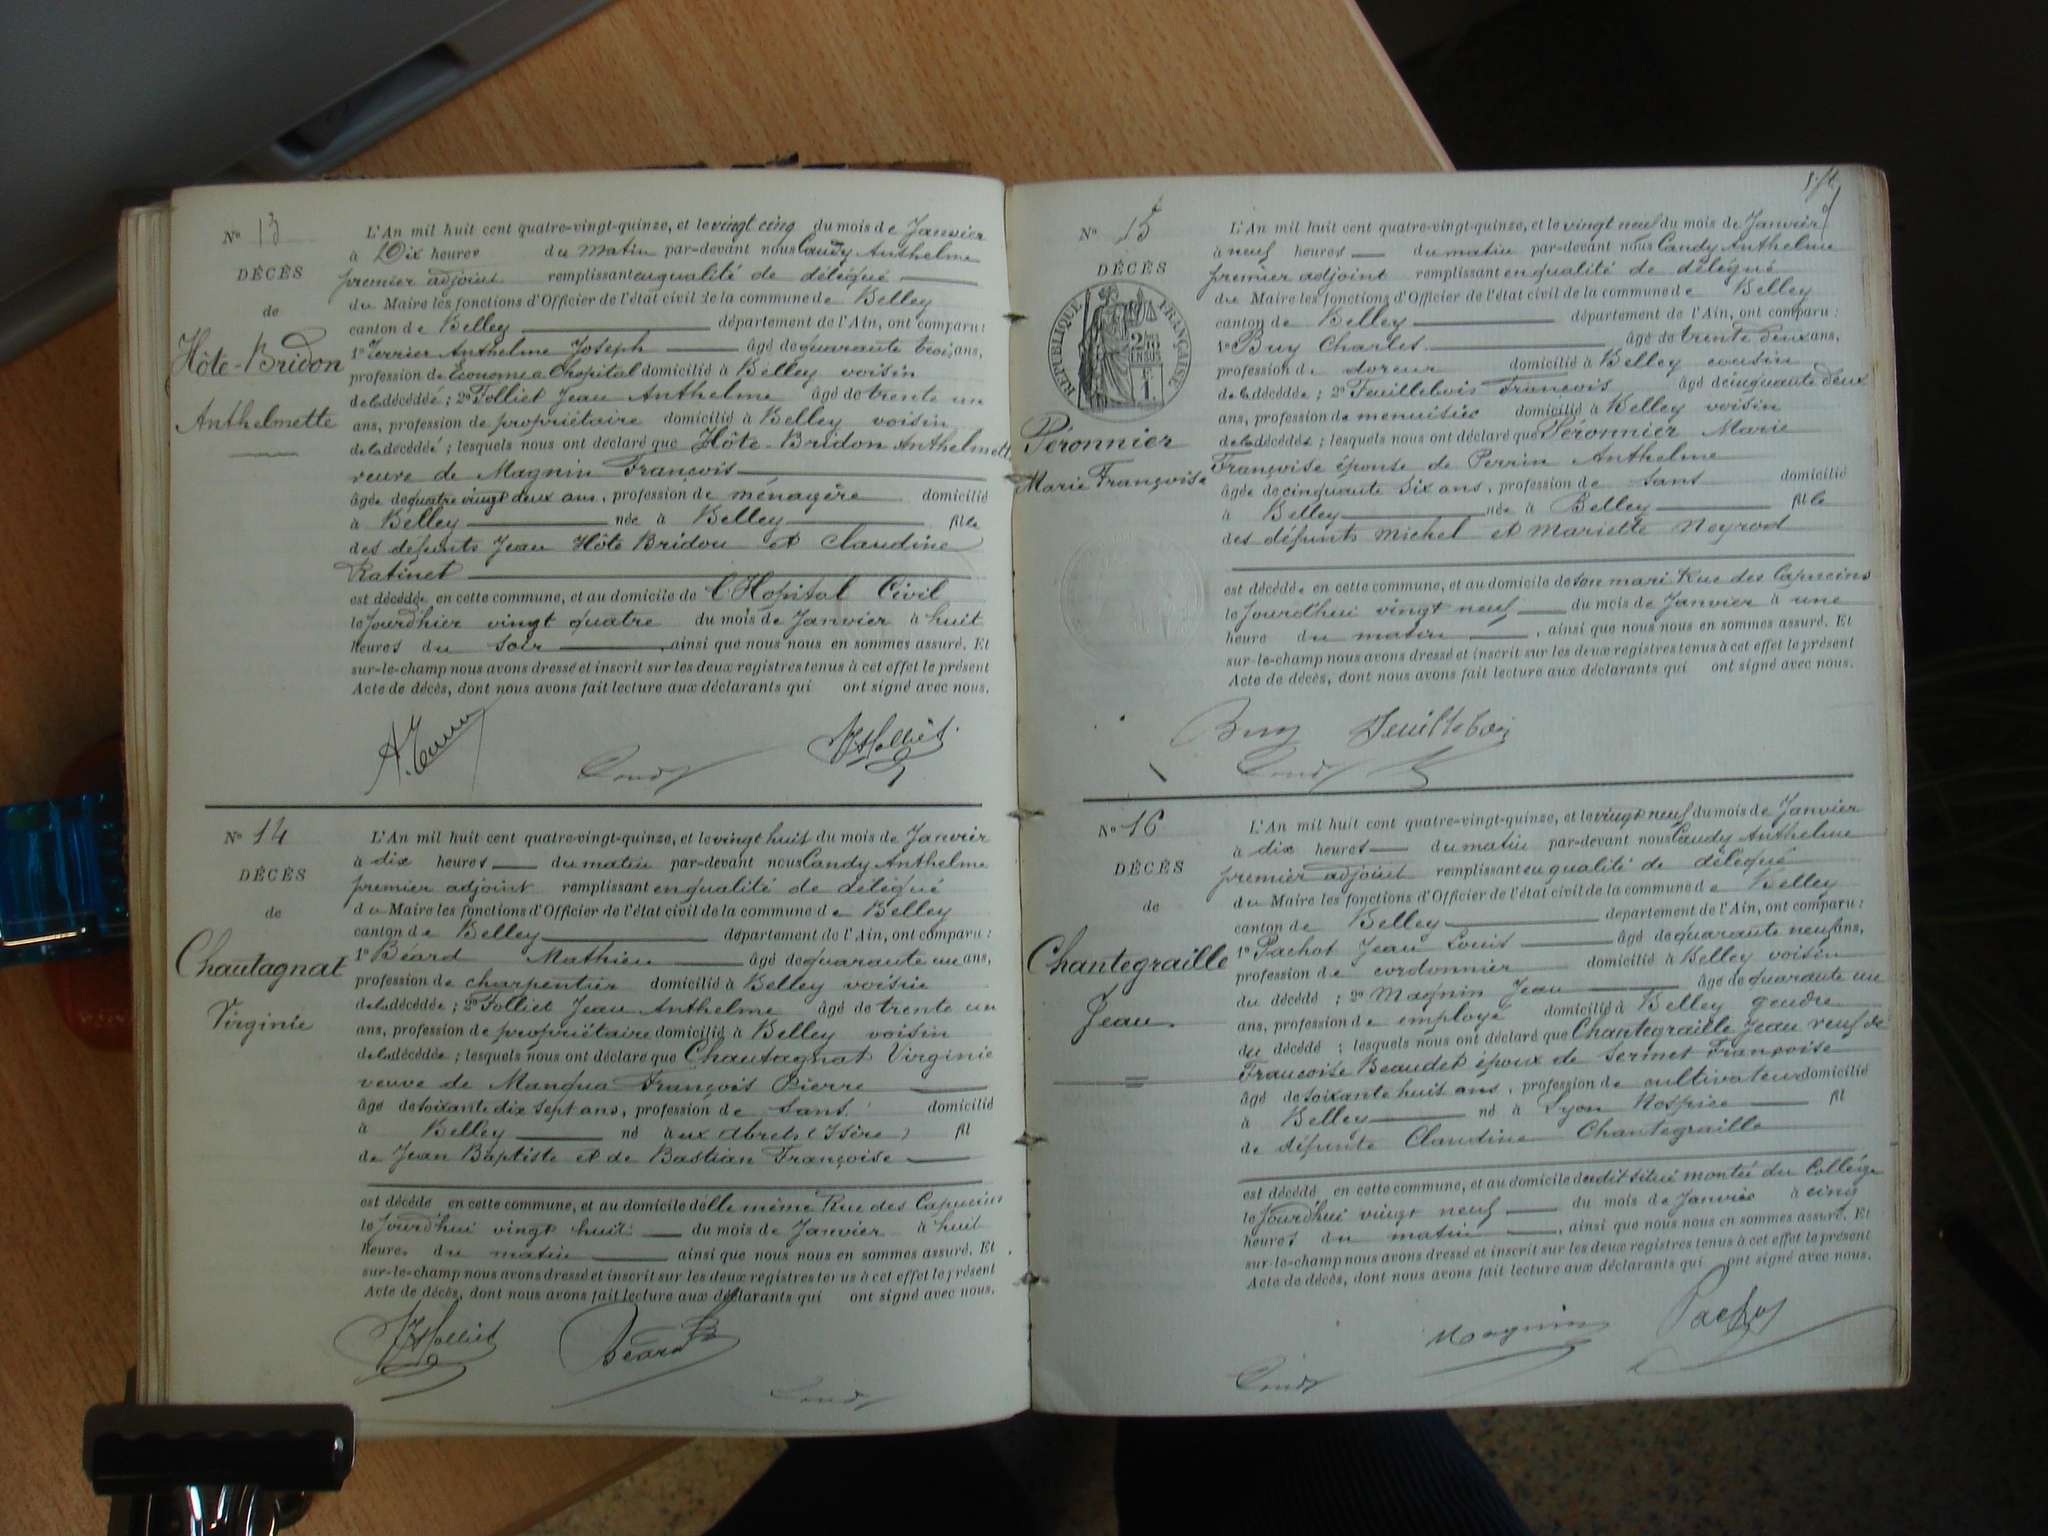 N° 13
DÉCÈS
de
Hôte-Bridon
Anthelmette
L'An mil huit cent quatre-vingt-quinze, et le vingt cinq du mois de Janvier
à Dix heures du Matin par-devant nous Candy Anthelme
premier adjoint remplissant en qualité de délégué
du Maire les fonctions d'Officier de l'état civil de la commune de Belley
canton de Belley département de l'Ain, ont comparu :
1° Terrier Anthelme Joseph âgé de quarante trois ans,
profession de Econome a l'hopital domicilié à Belley voisin
de la décédée ; 2° Folliet Jean Anthelme âgé de trente un
ans, profession de propriétaire domicilié à Belley voisin
de la décédée ; lesquels nous ont déclaré que Hôte-Bridon Anthelmette
veuve de Magnin François
âgée de quatre vingt deux ans, profession de ménagère domicilié
à Belley née à Belley fille
des défunts Jean Hôte Bridon et Claudine
Ratinet
est décédée en cette commune, et au domicile de l'Hopital Civil
le Jourd'hier vingt quatre du mois de Janvier à huit
heures du soir ainsi que nous nous en sommes assuré. Et
sur-le-champ nous avons dressé et inscrit sur les deux registres tenus à cet effet le présent
Acte de décès, dont nous avons fait lecture aux déclarants qui ont signé avec nous.
Candy
Folliet
N° 14
DÉCÈS
de
Chautagnat
Virginie
L'An mil huit cent quatre-vingt-quinze, et le vingt huit du mois de Janvier
à dix heures du matin par-devant nous Candy Anthelme
premier adjoint remplissant en qualité de délégué
du Maire les fonctions d'Officier de l'état civil de la commune de Belley
canton de Belley département de l'Ain, ont comparu :
1° Béard Mathieu âgé de quarante un ans,
profession de charpentier domicilié à Belley voisin
de la décédée ; 2° Folliet Jean Anthelme âgé de trente un
ans, profession de propriétaire domicilié à Belley voisin
de la décédée ; lesquels nous ont déclaré que Chautagnat Virginie
veuve de Manqua François Pierre
âgé de soixante dix sept ans, profession de sans domicilié
à Belley né aux Abrets (Isère) fil
de Jean Baptiste et de Bastian Françoise
est décédé en cette commune, et au domicile d'elle même Rue des Capucins
le Jourd'hui vingt huit du mois de Janvier à huit
heures du matin ainsi que nous nous en sommes assuré. Et
sur-le-champ nous avons dressé et inscrit sur les deux registres tenus à cet effet le présent
Acte de décès, dont nous avons fait lecture aux déclarants qui ont signé avec nous.
Folliet
Béard
Candy
N° 15
DÉCÈS
RÉPUBLIQUE FRANÇAISE
Péronnier
Marie Françoise
L'An mil huit cent quatre-vingt-quinze, et le vingt neuf du mois de Janvier
à neuf heures du matin par-devant nous Candy Anthelme
premier adjoint remplissant en qualité de délégué
du Maire les fonctions d'Officier de l'état civil de la commune de Belley
canton de Belley département de l'Ain, ont comparu :
1° Buy Charles âgé de trente deux ans,
profession de doreur domicilié à Belley cousin
de la décédée ; 2° Feuillebois François âgé de cinquante deux
ans, profession de menuisier domicilié à Belley voisin
de la décédée ; lesquels nous ont déclaré que Péronnier Marie
Françoise épouse de Perrin Anthelme
âgée de cinquante six ans, profession de sans domicilié
à Belley née à Belley fille
des défunts Michel et Mariette Neyrod
est décédée en cette commune, et au domicile de son mari Rue des Capucins
le Jourd'hui vingt neuf du mois de Janvier à une
heure du matin, ainsi que nous nous en sommes assuré. Et
sur-le-champ nous avons dressé et inscrit sur les deux registres tenus à cet effet le présent
Acte de décès, dont nous avons fait lecture aux déclarants qui ont signé avec nous.
Buy Feuillebois
Candy
N° 16
DÉCÈS
de
Chantegraille
Jean.
L'An mil huit cent quatre-vingt-quinze, et le vingt neuf du mois de Janvier
à dix heures du matin par-devant nous Candy Anthelme
premier adjoint remplissant en qualité de délégué
du Maire les fonctions d'Officier de l'état civil de la commune de Belley
canton de Belley département de l'Ain, ont comparu :
1° Pachot Jean Louis âgé de quarante neuf ans,
profession de cordonnier domicilié à Belley voisin
du décédé ; 2° Magnin Jean âgé de quarante un
ans, profession de employé domicilié à Belley gendre
du décédé ; lesquels nous ont déclaré que Chantegraille Jean veuf de
Françoise Beaudet époux de Sermet Françoise
âgé de soixante huit ans, profession de cultivateur domicilié
à Belley né à Lyon Hospice fil
de défunte Claudine Chantegraille
est décédé en cette commune, et au domicile dudit situé montée du Collége
le Jourd'hui vingt neuf du mois de Janvier à cinq
heures du matin, ainsi que nous nous en sommes assuré. Et
sur-le-champ nous avons dressé et inscrit sur les deux registres tenus à cet effet le présent
Acte de décès, dont nous avons fait lecture aux déclarants qui ont signé avec nous.
Magnin Pachot
Candy